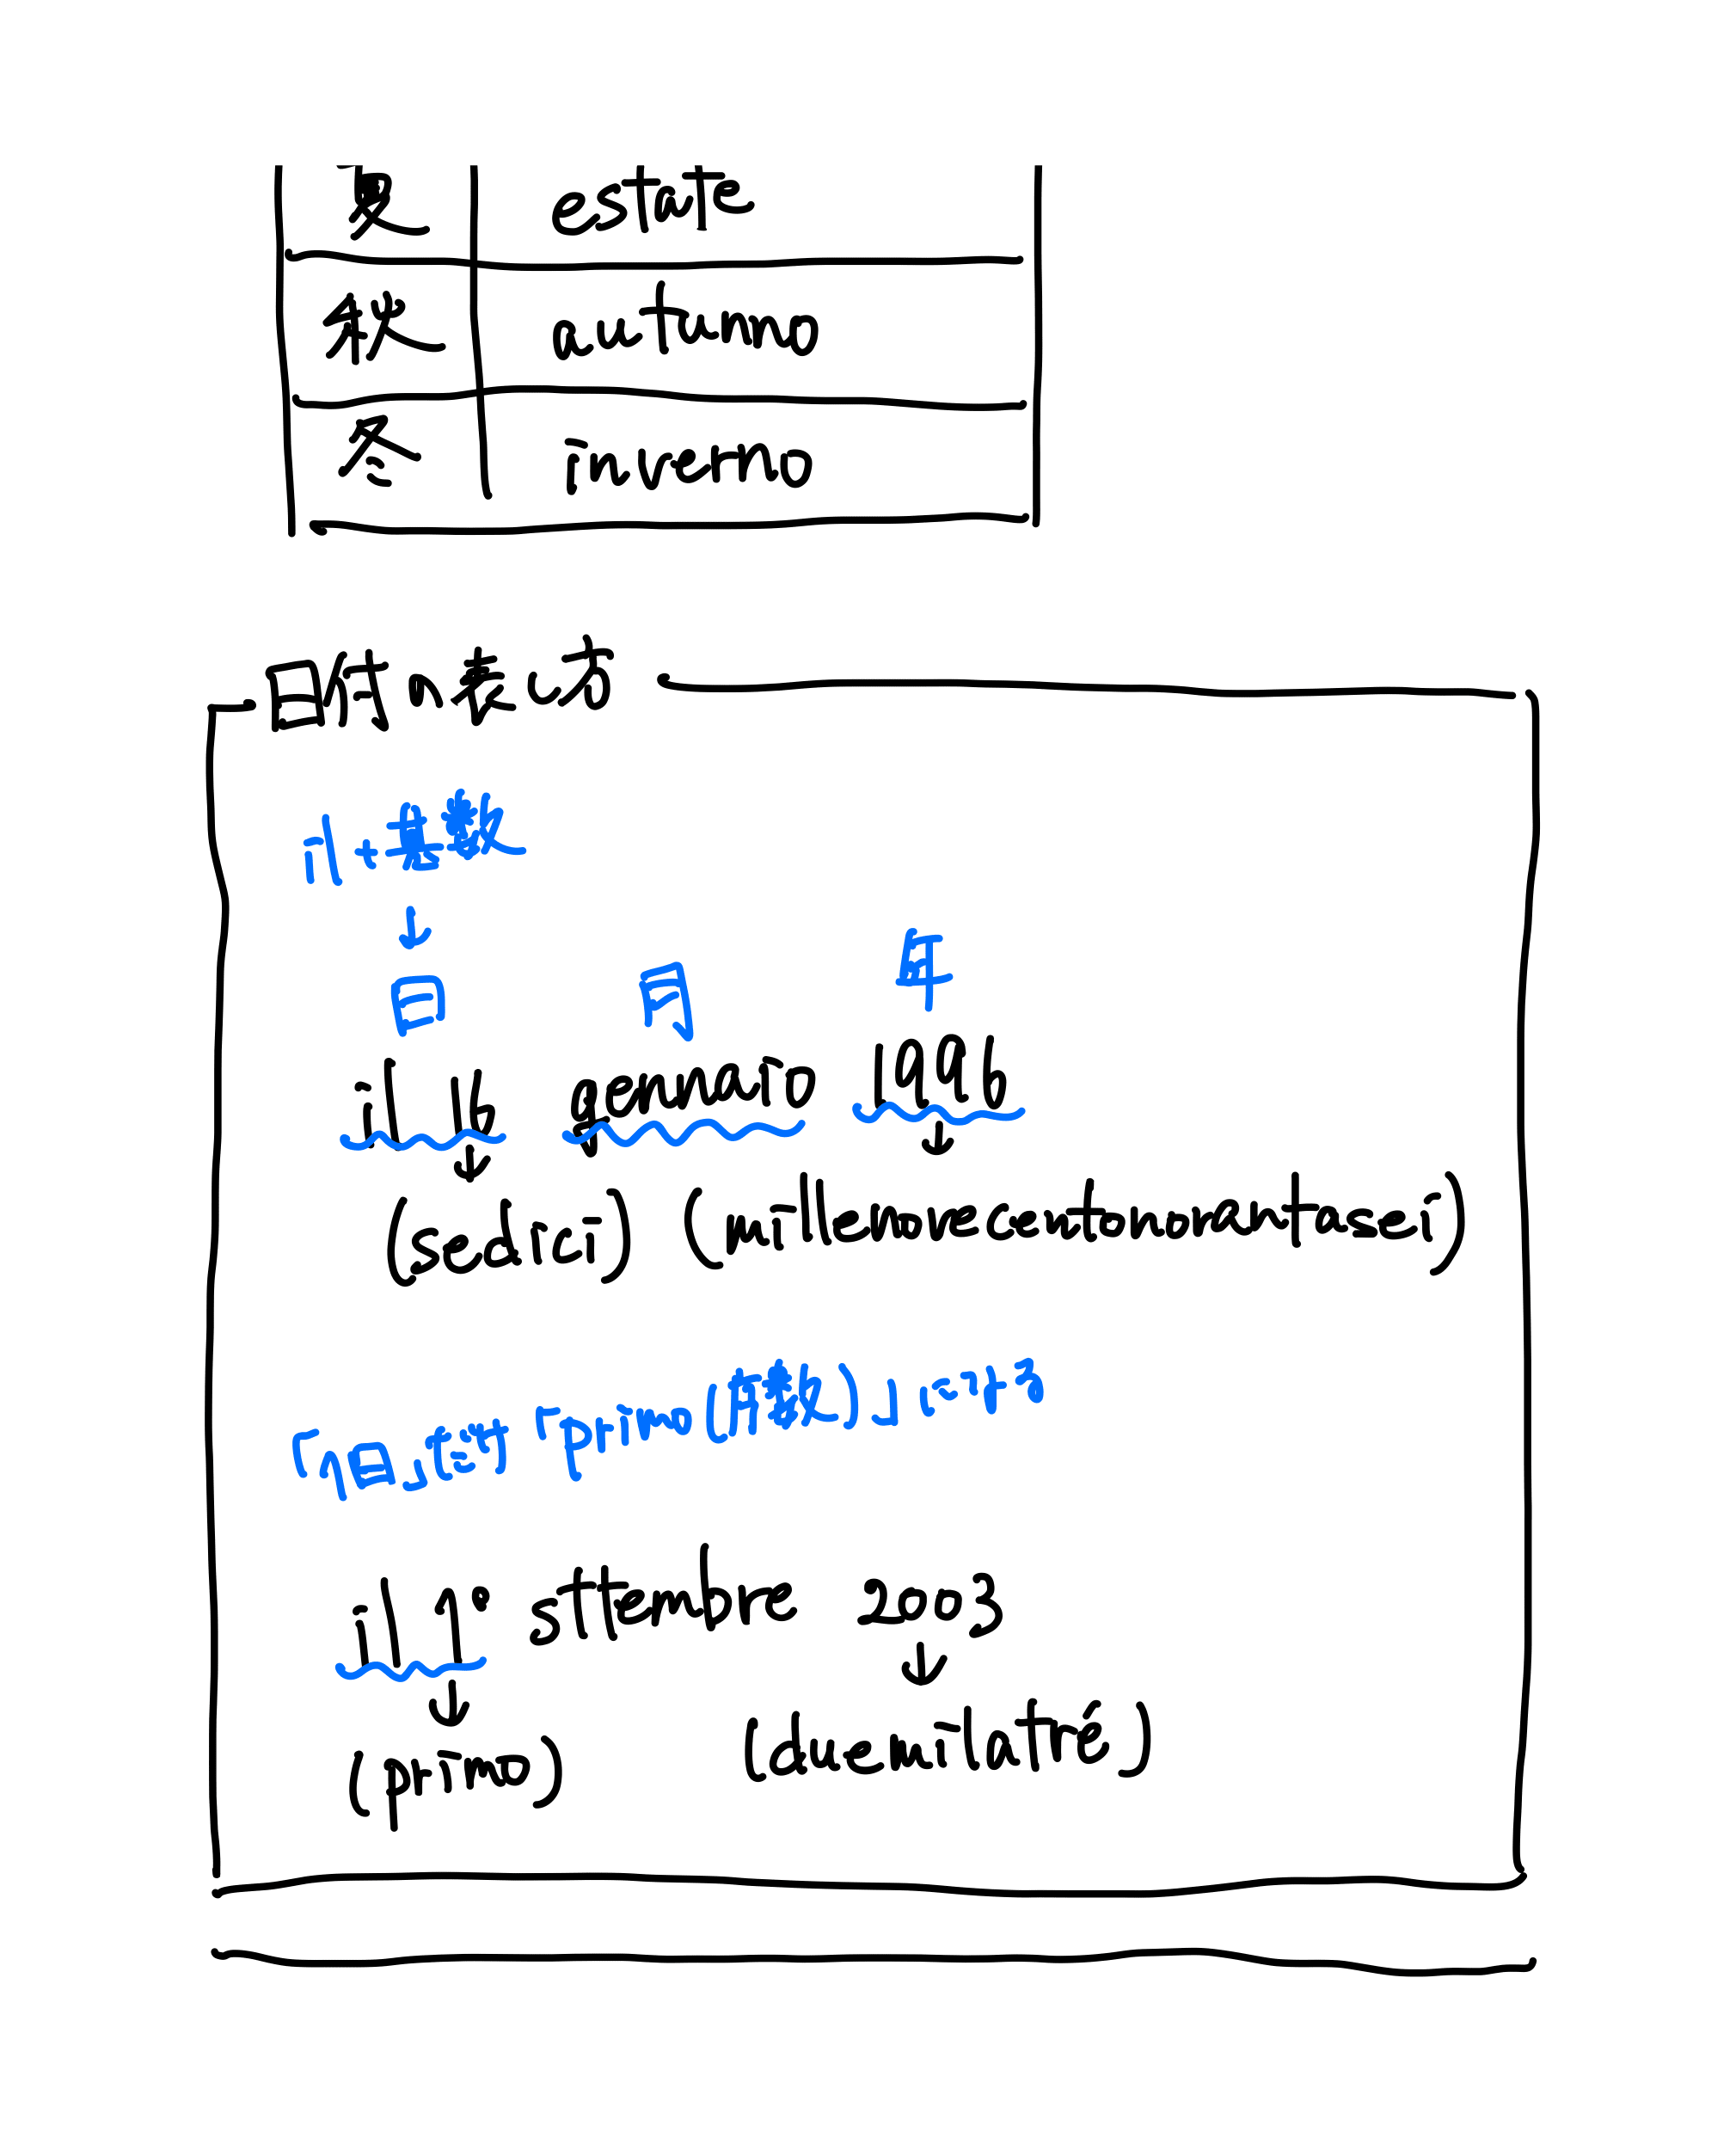 夏 estate
秋 autunno
冬 inverno
日付の表し方
il+基数
↓
日 月 年
il 16 gennaio 1996
↓ ↓
(sedici) (millenovecentonovantasei)
「1日」だけ「primo(序数)」にする
il 1° sttembre 2003
↓ ↓
(primo) (duemilatré)